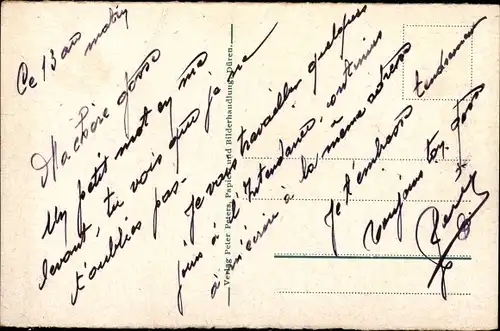 Ce 13 au matin
Ma chère Gosse
Un petit mot en me
levant, tu vois que je ne
t'oublies pas.
Je vais travailler quelques
jours à l'Intendance, continue
à m'écrire à la même adresse
Je t'embrasse tendrement
Toujours ton Goss
René
Verlag Peter Peters, Papier- und Bilderhandlung, Düren.